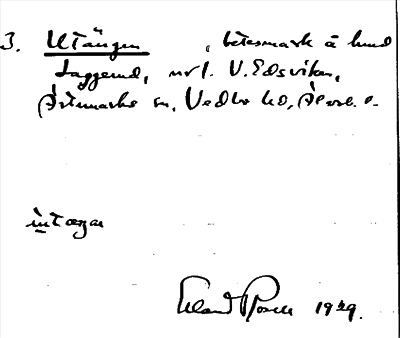 3. Utängen, betesmark å hmd
Laggerud, nrl. V. Edsviken,
Årtemarks sn, Vedbo hd, Älvsb. l.
ùtæŋan
Erland Rosell 1929.